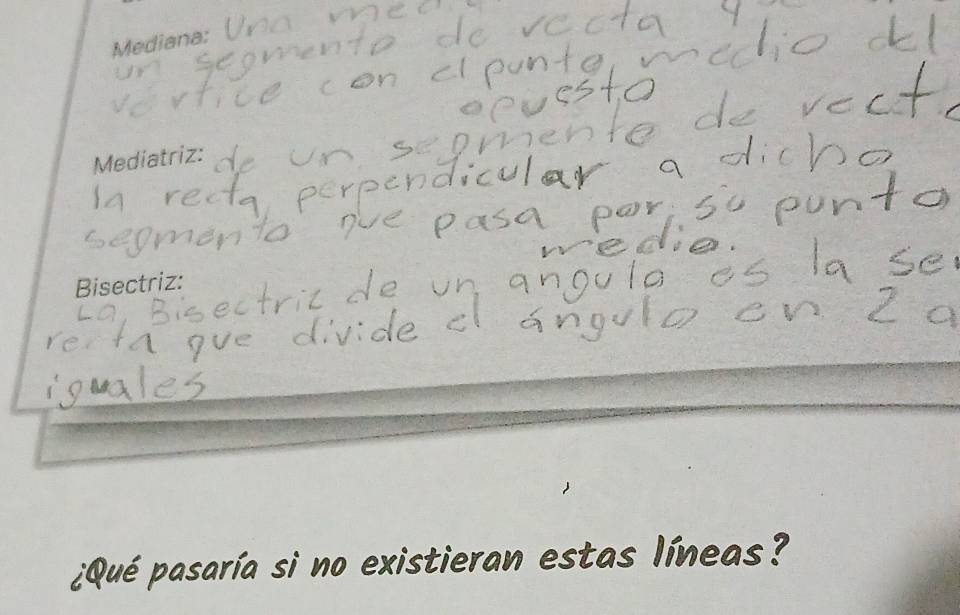 Mediana: Una
un segmento de recta q
vértice con el punto medio del
opuesto
Mediatriz: de un segmento de recta
la recta perpendicular a dicho
segmento que pasa por su punto
medio.
Bisectriz:
La Bisectriz de un angulo es la
recta que divide el ángulo en 2 a
iguales
¿Qué pasaría si no existieran estas líneas?